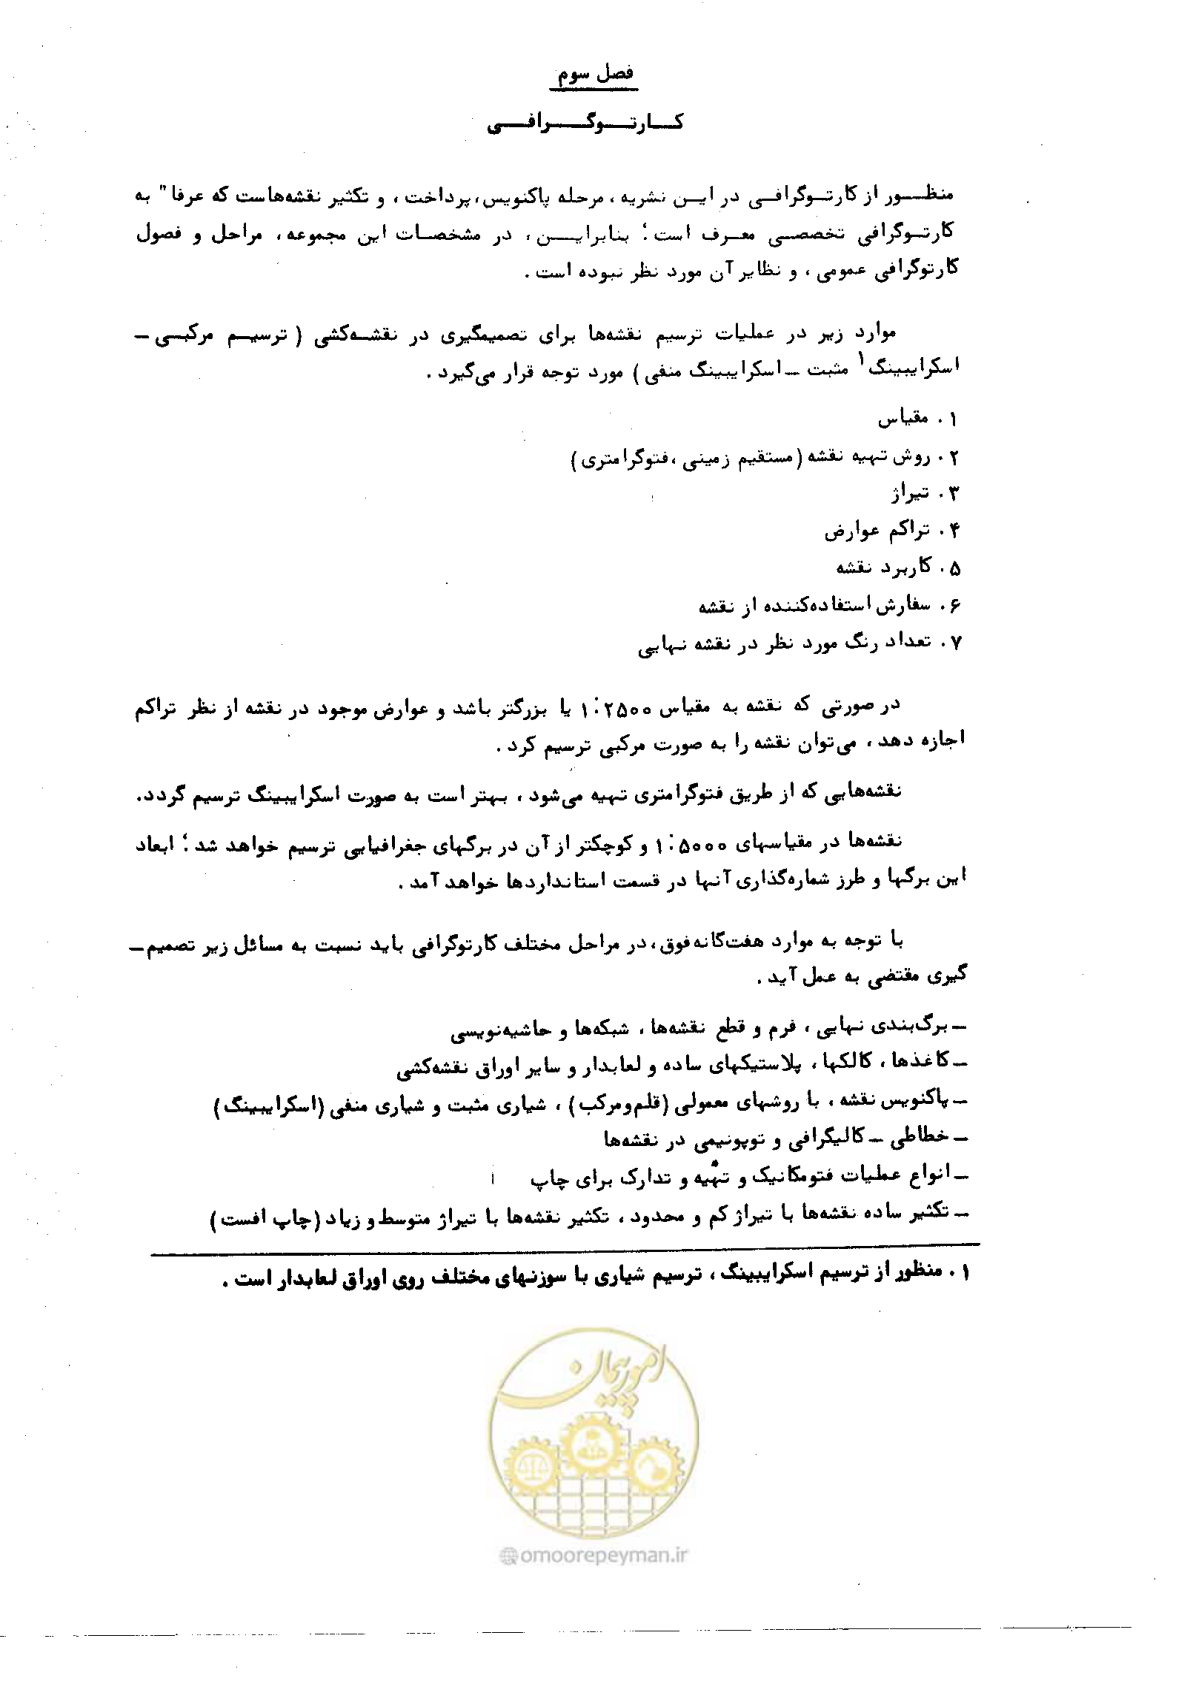 فصل سوم
کـارتـوگـرافـی
منظـور از کارتـوگرافـی در ایـن نشریه ، مرحله پاکنویس،پرداخت ، و تکثیر نقشه‌هاست که عرفا" به
کارتـوگرافی تخصصـی معـرف است؛ بنابرایـن ، در مشخصـات این مجموعه، مراحل و فصول
کارتوگرافی عمومی ، و نظایر آن مورد نظر نبوده است .
موارد زیر در عملیات ترسیم نقشه‌ها برای تصمیمگیری در نقشـه‌کشی ( ترسیـم مرکبـی ـ
اسکرایبینگ۱ مثبت ـ اسکرایبینگ منفی ) مورد توجه قرار می‌گیرد .
۱ . مقیاس
۲ . روش تهیه نقشه (مستقیم زمینی ،فتوگرامتری )
۳ . تیراژ
۴ . تراکم عوارض
۵ . کاربرد نقشه
۶ . سفارش استفاده‌کننده از نقشه
۷ . تعداد رنگ مورد نظر در نقشه نهایی
در صورتی که نقشه به مقیاس ۱:۲۵۰۰ یا بزرگتر باشد و عوارض موجود در نقشه از نظر تراکم
اجازه دهد ، می‌توان نقشه را به صورت مرکبی ترسیم کرد .
نقشه‌هایی که از طریق فتوگرامتری تهیه می‌شود ، بهتر است به صورت اسکرایبینگ ترسیم گردد.
نقشه‌ها در مقیاسهای ۱:۵۰۰۰ و کوچکتر از آن در برگهای جغرافیایی ترسیم خواهد شد؛ ابعاد
این برگها و طرز شماره‌گذاری آنها در قسمت استانداردها خواهد آمد .
با توجه به موارد هفت‌گانه فوق ، در مراحل مختلف کارتوگرافی باید نسبت به مسائل زیر تصمیم ـ
گیری مقتضی به عمل آید .
ـ برگ‌بندی نهایی ، فرم و قطع نقشه‌ها ، شبکه‌ها و حاشیه‌نویسی
ـ کاغذها ، کالکها ، پلاستیکهای ساده و لعابدار و سایر اوراق نقشه‌کشی
ـ پاکنویس نقشه ، با روشهای معمولی (قلم‌ومرکب ) ، شیاری مثبت و شیاری منفی (اسکرایبینگ )
ـ خطاطی ـ کالیگرافی و توپونیمی در نقشه‌ها
ـ انواع عملیات فتومکانیک و تهیه و تدارک برای چاپ
ـ تکثیر ساده نقشه‌ها با تیراژ کم و محدود ، تکثیر نقشه‌ها با تیراژ متوسط و زیاد (چاپ افست )
۱ . منظور از ترسیم اسکرایبینگ ، ترسیم شیاری با سوزنهای مختلف روی اوراق لعابدار است .
امور پیمان
@omoorepeyman.ir